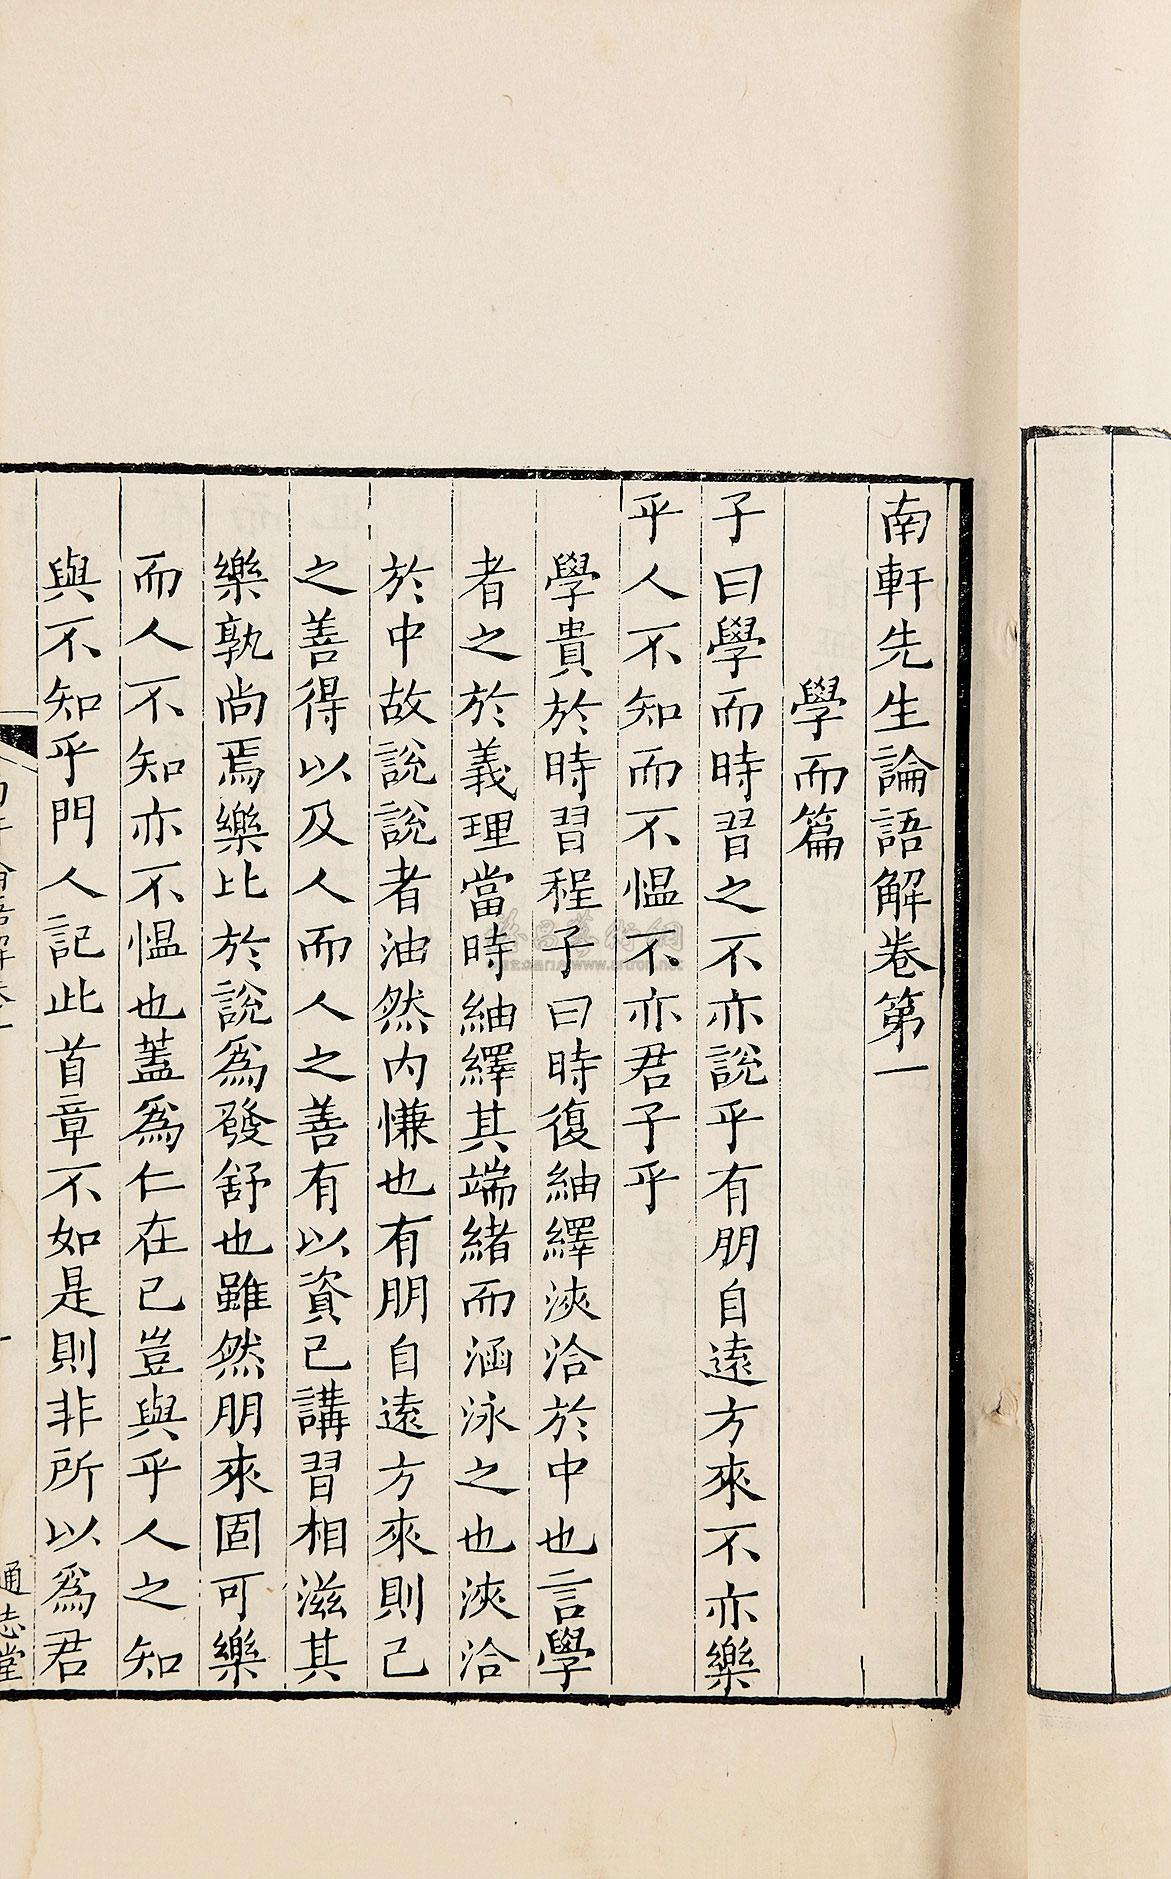 南軒先生論語解卷第一
學而篇
子曰學而時習之不亦說乎有朋自遠方來不亦樂
乎人不知而不慍不亦君子乎
學貴於時習程子曰時復紬繹浹洽於中也言學
者之於義理當時紬繹其端緒而涵泳之也浹洽
於中故說說者油然內慊也有朋自遠方來則己
之善得以及人而人之善有以資己講習相滋其
樂孰尚焉樂比於說為發舒也雖然朋來固可樂
而人不知亦不慍也蓋為仁在己豈與乎人之知
與不知乎門人記此首章不如是則非所以為君
通志堂